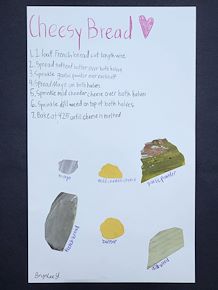 Cheesy Bread
1. 1 loaf French bread cut lengthwise
2. Spread softend butter over both halves
3. Sprinkle garlic powder over each half
4. Spread Mayo on both halves
5. Sprinkle mild chedder cheese over both halves
6. Sprinkle dill weed on top of both halves
7. Bake at 425 until cheese is melted
mayo
mild chedder cheese
garlic powder
French bread
butter
dill weed